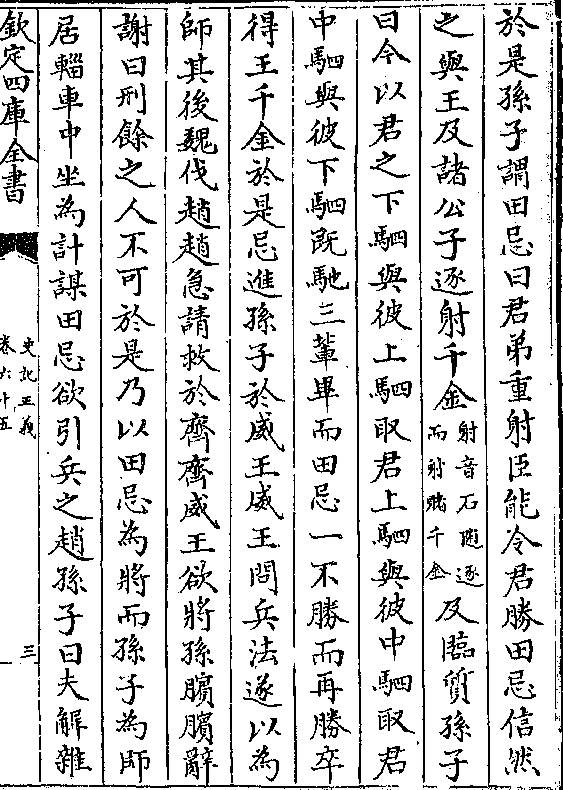 於是孫子謂田忌曰君弟重射臣能令君勝田忌信然
之與王及諸公子逐射千金射音石隨逐而射賭千金及臨質孫子
曰今以君之下駟與彼上駟取君上駟與彼中駟取君
中駟與彼下駟既馳三輩畢而田忌一不勝而再勝卒
得王千金於是忌進孫子於威王威王問兵法遂以為
師其後魏伐趙趙急請救於齊齊威王欲將孫臏臏辭
謝曰刑餘之人不可於是乃以田忌為將而孫子為師
居輜車中坐為計謀田忌欲引兵之趙孫子曰夫解雜
欽定四庫全書
史記正義
卷六十五
三